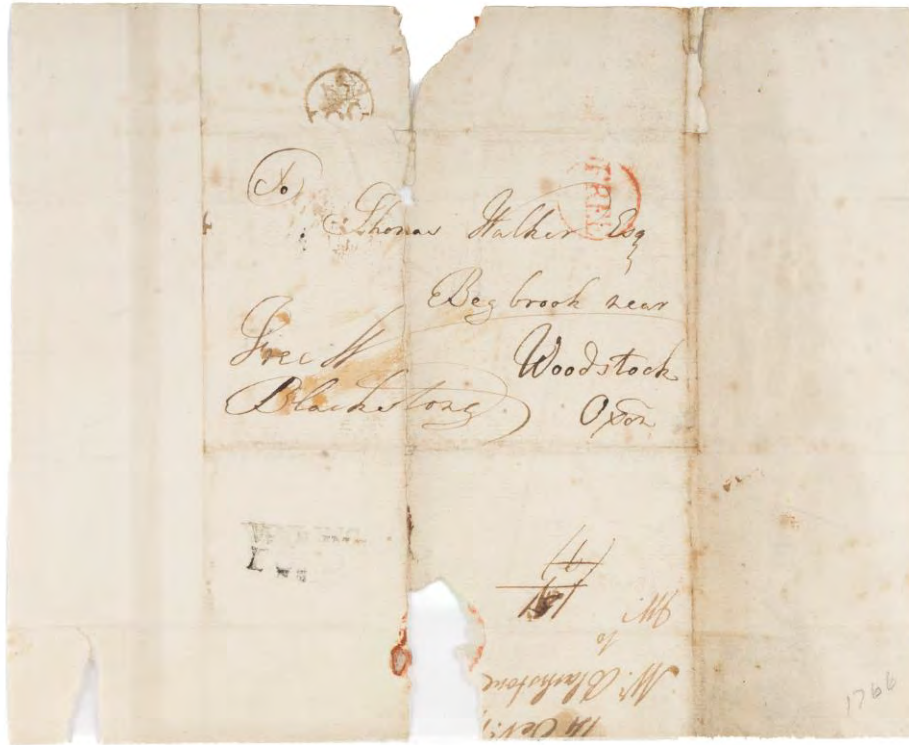 To
Thomas Walker Esq
Begbrook near
Woodstock
Oxon
Free W
Blackstone
FREE
14 Oct:
Mr. Blackstone
to
Mr.
1766